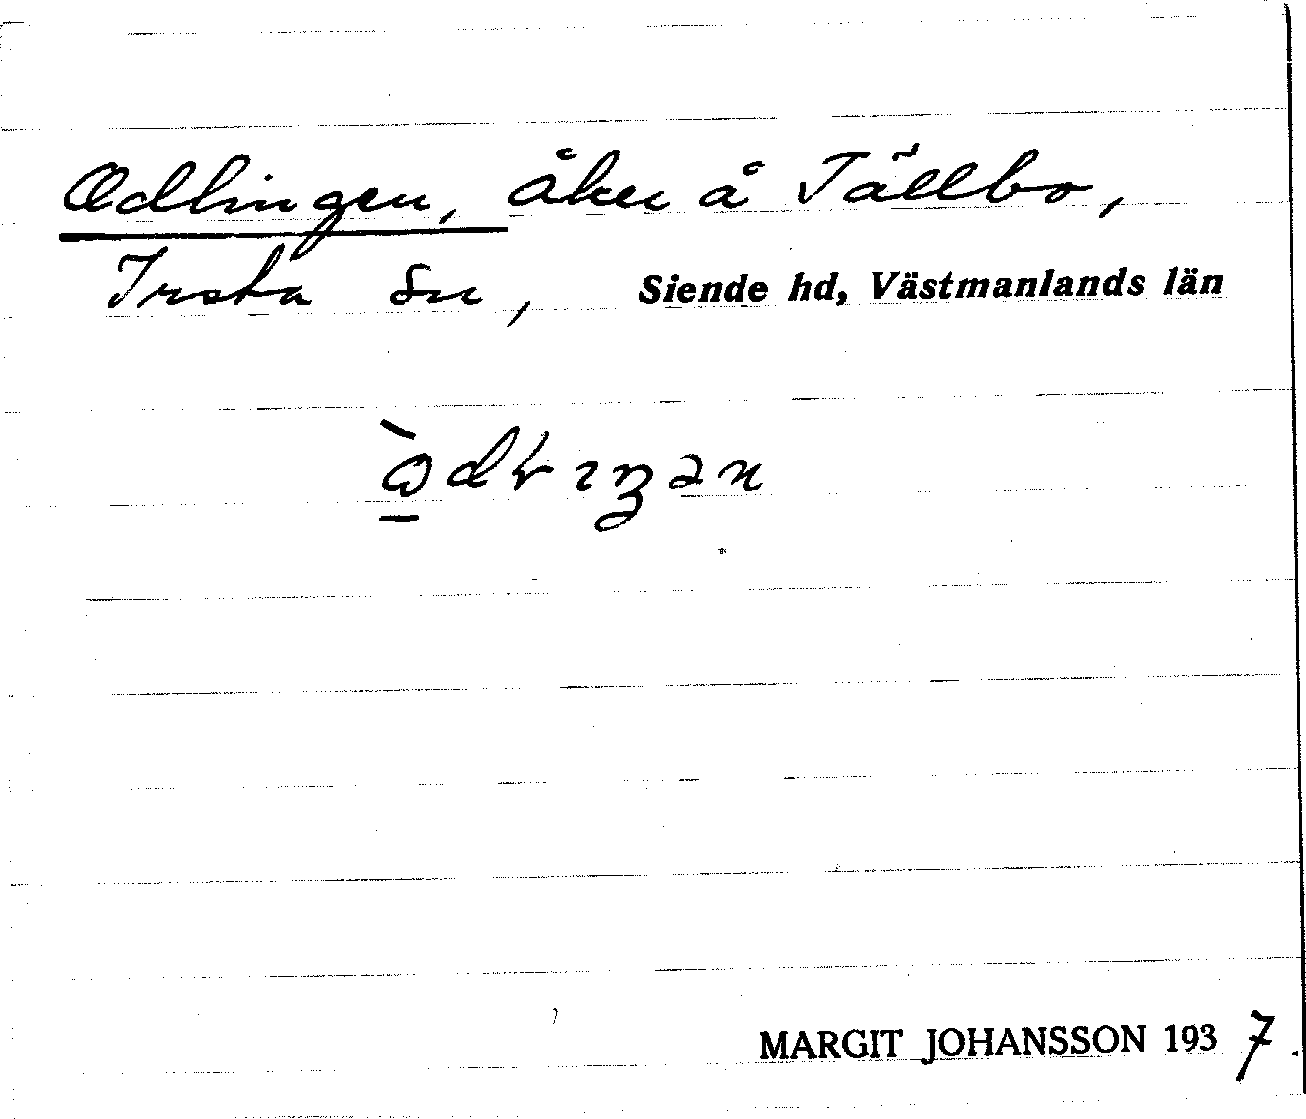 Ödlingen, åker å Tällbo,
Irsta sn, Siende hd, Västmanlands län
MARGIT JOHANSSON 1937